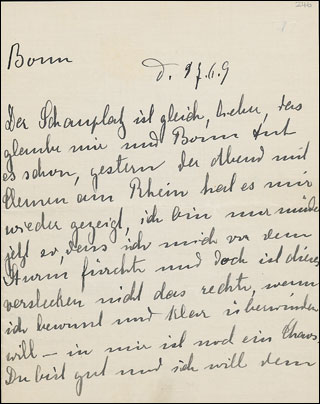 246
Bonn
d. 27.6.9
Der Schauplatz ist gleich, Lieber, das
glaube mir und Bonn tut
es schon, gestern der Abend mit
Clemen am Rhein hat es mir
wieder gezeigt, ich bin nur müde
jetzt so, dass ich mich vor dem
Sturm fürchte und doch ist dieses
verstecken nicht das rechte, wenn
ich bewusst und klar überwinden
will — in mir ist noch ein Chaos.
Du bist gut und ich will dem